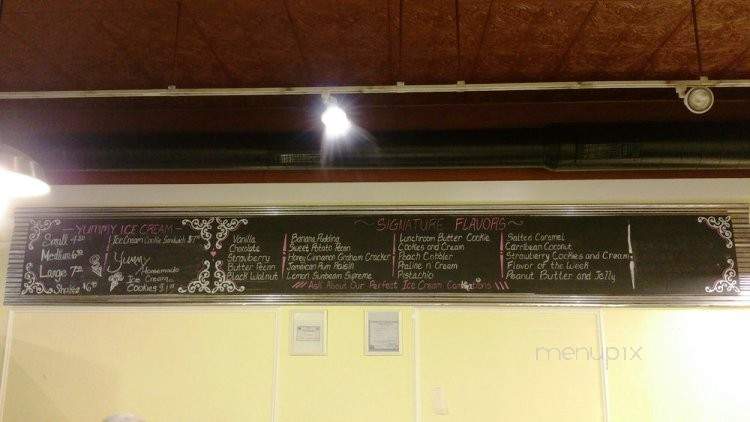 YUMMY ICE CREAM
Small 4.20
Medium 6.20
Large 7.20
Shakes $6.
Ice Cream Cookie Sandwich $7
Yummy
Homemade
Ice Cream
Cookies $1.
SIGNATURE FLAVORS
Vanilla
Chocolate
Strawberry
Butter Pecan
Black Walnut
Banana Pudding
Sweet Potato Pecan
Honey Cinnamon Graham Cracker
Jamaican Rum Raisin
Lemon Sunbeam Supreme
Lunchroom Butter Cookie
Cookies and Cream
Peach Cobbler
Praline n Cream
Pistachio
Salted Caramel
Carribean Coconut
Strawberry Cookies and Cream
Flavor of the Week
Peanut Butter and Jelly
Ask About Our Perfect Ice Cream
menupix